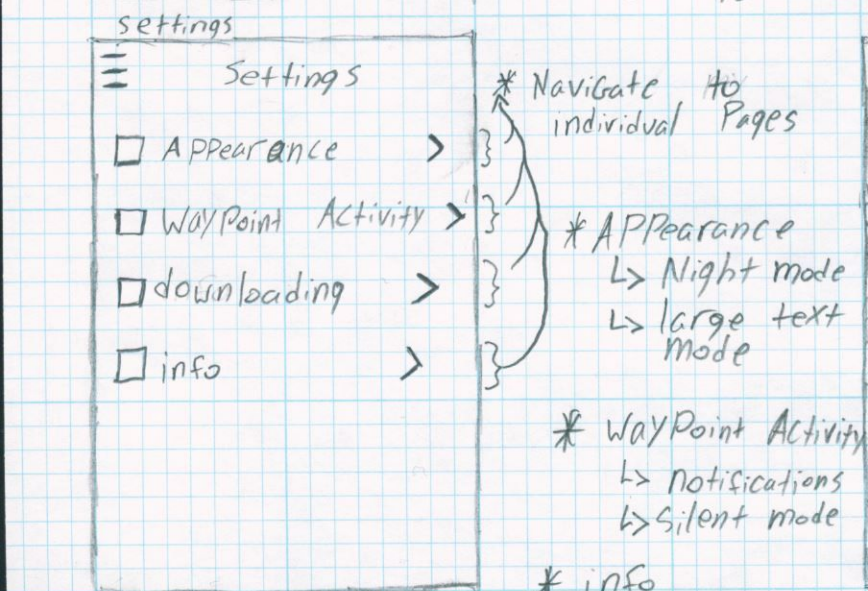 settings
Settings
Appearance >
WayPoint Activity >
downloading >
info >
* Navigate to
individual Pages
* Appearance
↳ Night mode
↳ large text
mode
* WayPoint Activity
↳ notifications
↳ Silent mode
* info